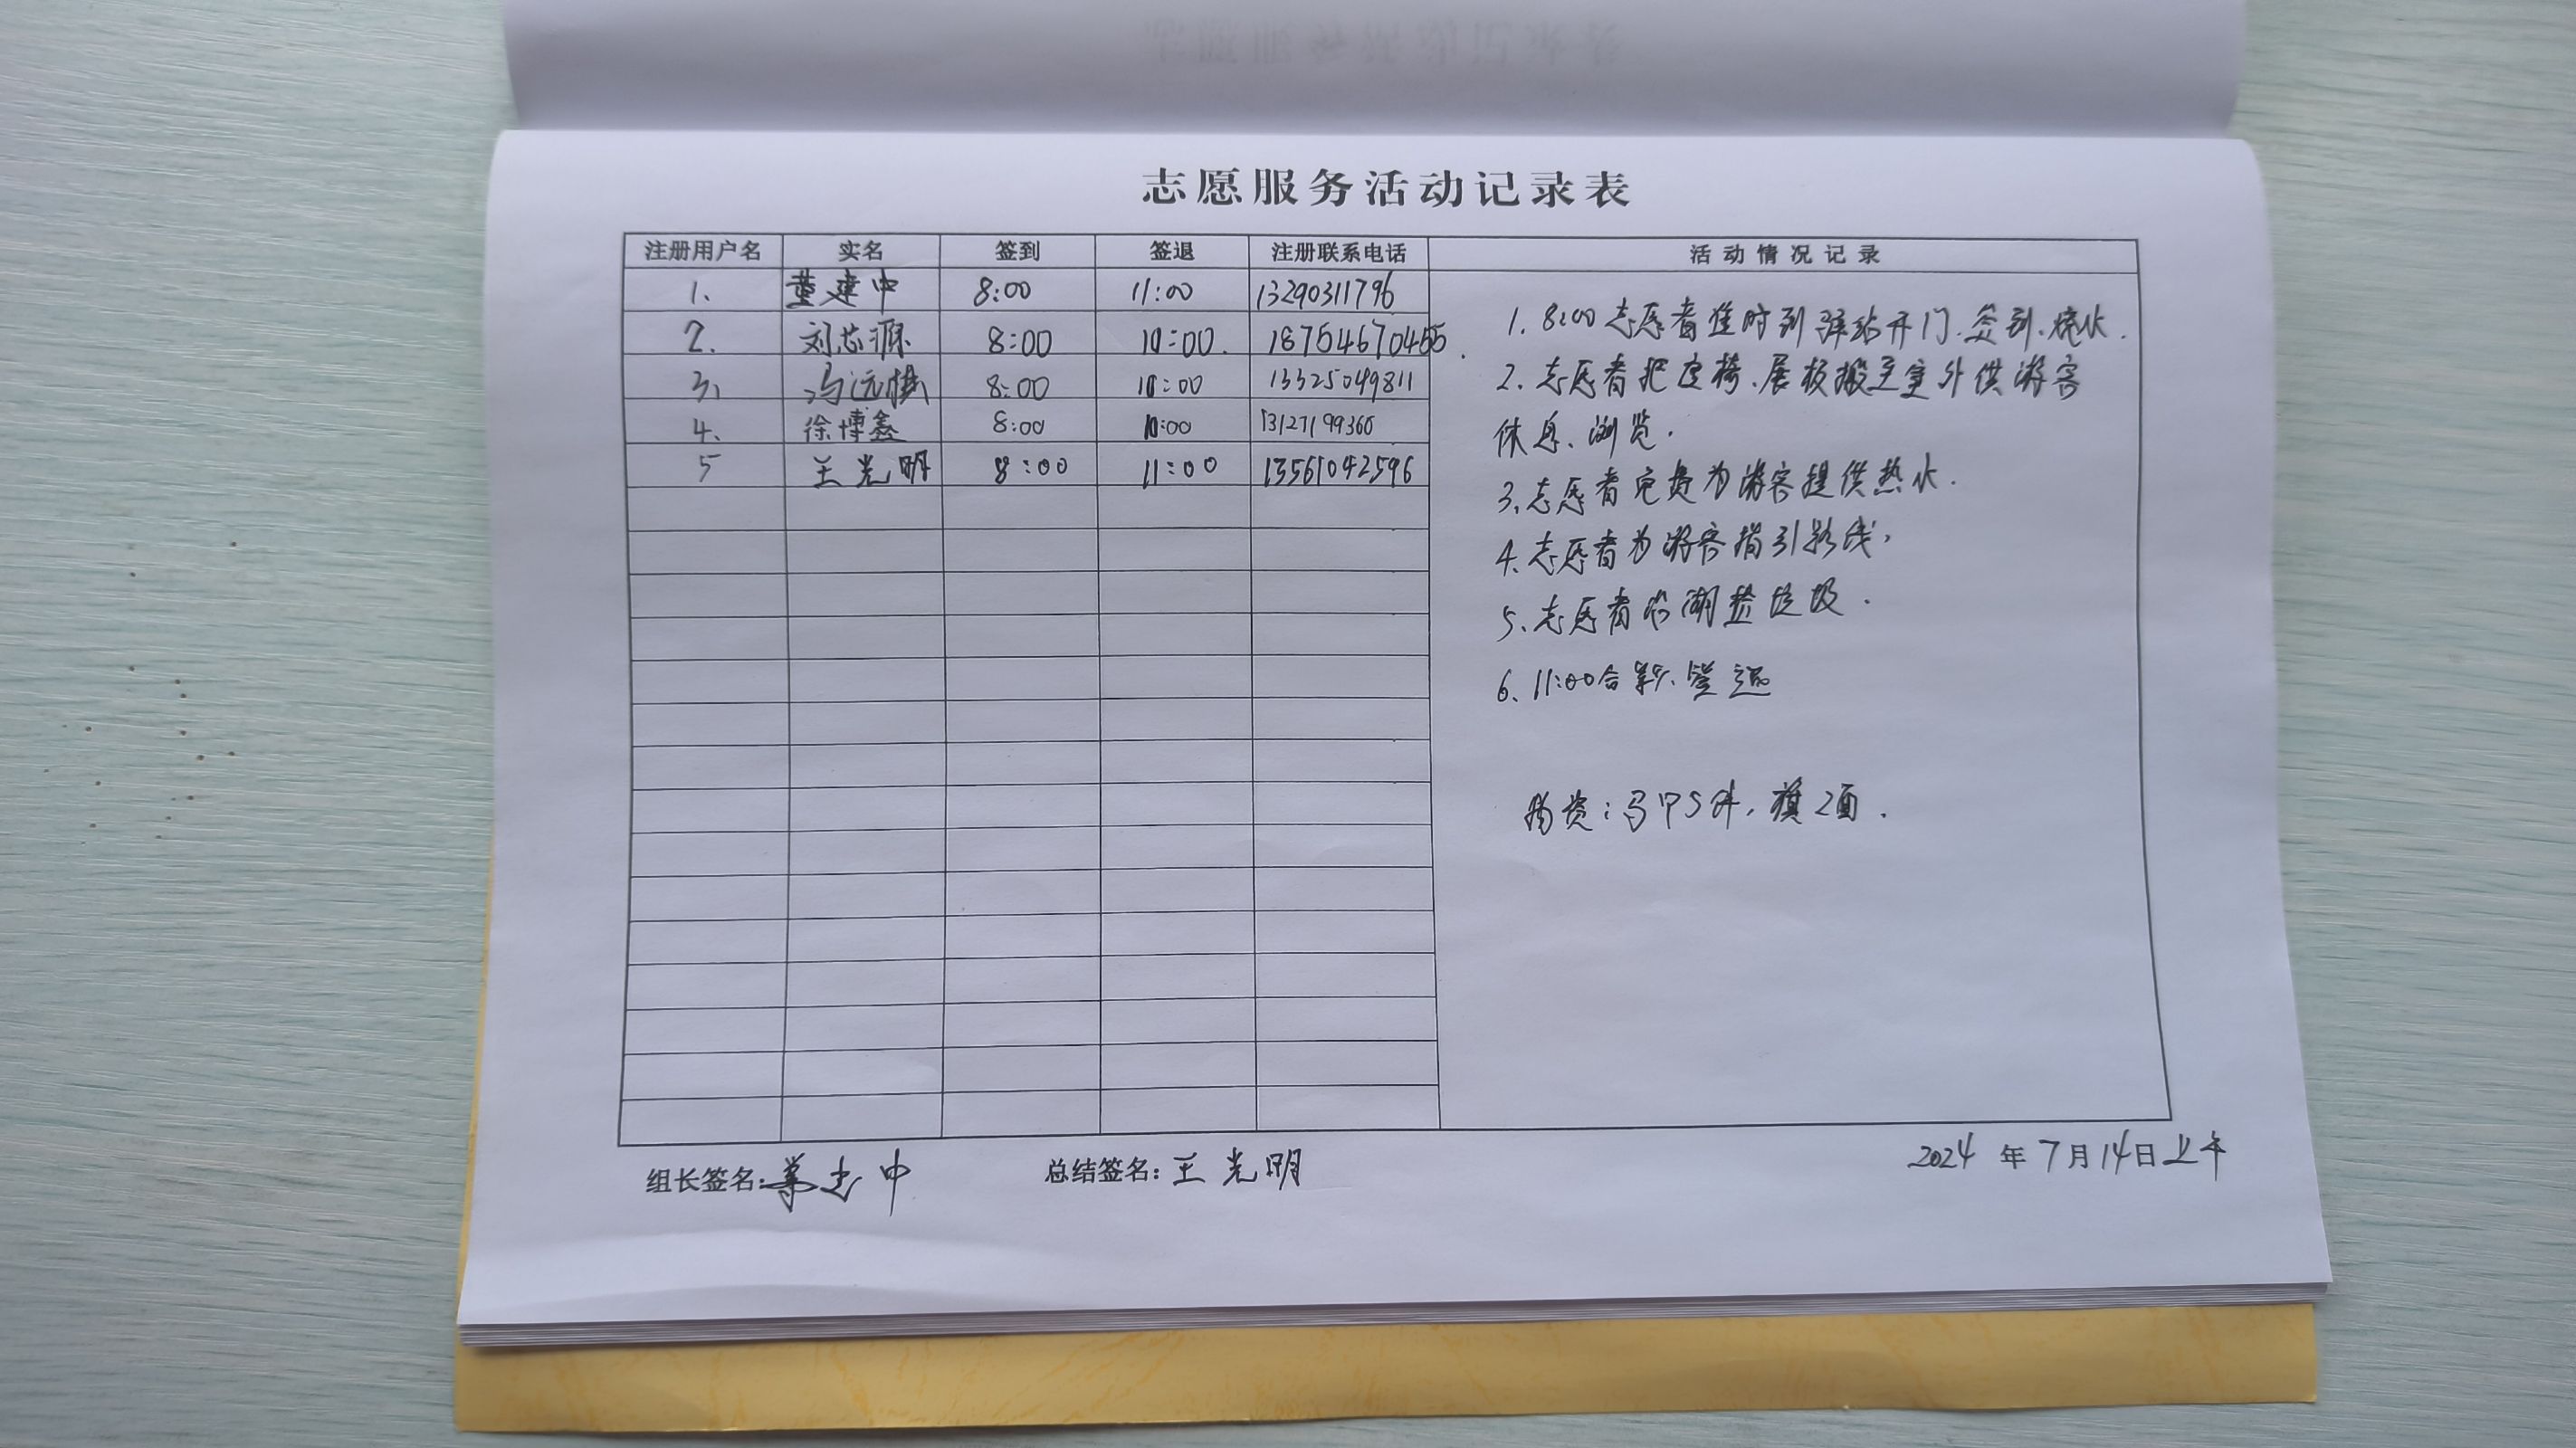 志愿服务活动记录表
注册用户名 实名 签到 签退 注册联系电话 活动情况记录
1、 董建中 8:00 11:00 13290311796
2. 刘芯源 8:00 :00. 187546704
3、 冯远 8:00 :00 13325049811
4、 徐博鑫 8:00 :00 13127199360
5 王光明 8:00 11:00 13561042596
1. 8:00志愿者准时到驿站开门、签到、烧水.
2、志愿者把座椅、展板搬至室外供游客
休息、浏览.
3、志愿者免费为游客提供热水.
4、志愿者为游客指引路线,
5、志愿者沿湖捡垃圾.
6、11:00合影、签退
物资:马甲5件,旗2面.
组长签名: 董建中 总结签名: 王光明 2024年7月14日上午